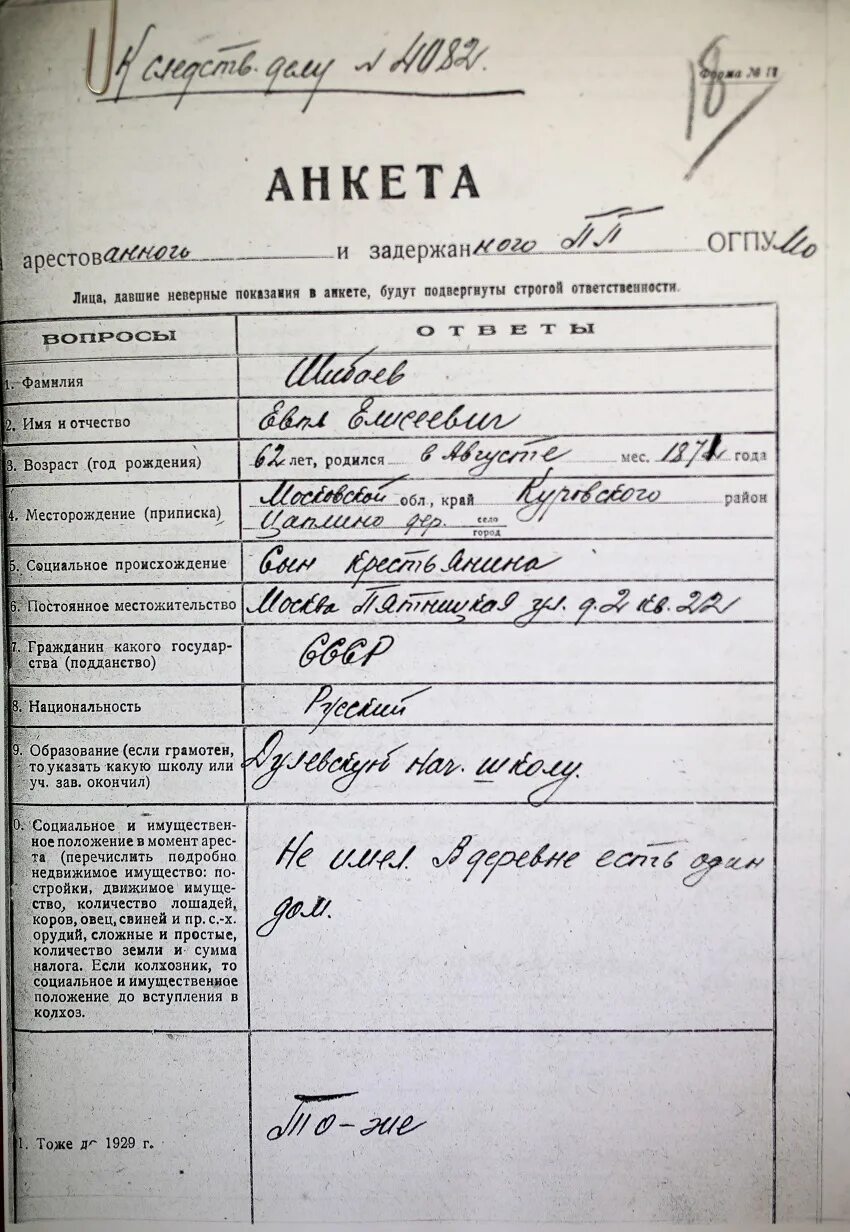 К следств. делу № 4082.
18
Форма № 18
АНКЕТА
арестованного и задержанного ПП ОГПУ МО
Лица, давшие неверные показания в анкете, будут подвергнуты строгой ответственности.
ВОПРОСЫ ОТВЕТЫ
1. Фамилия Шибаев
2. Имя и отчество Евпл Елисеевич
3. Возраст (год рождения) 62 лет, родился в Августе мес. 1871 года
4. Месторождение (приписка) Московской обл., край Куровского район
Цаплино дер. село город
5. Социальное происхождение Сын крестьянина
6. Постоянное местожительство Москва Пятницкая ул. д. 2 кв. 22
7. Гражданин какого государ-
ства (подданство) СССР
8. Национальность Русский
9. Образование (если грамотен,
то указать какую школу или
уч. зав. окончил) Дулевскую нач. школу.
0. Социальное и имуществен-
ное положение в момент арес-
та (перечислить подробно
недвижимое имущество: по-
стройки, движимое имуще-
ство, количество лошадей,
коров, овец, свиней и пр. с.-х.
орудий, сложные и простые,
количество земли и сумма
налога. Если колхозник, то
социальное и имущественное
положение до вступления в
колхоз.
Не имел. В деревне есть один
дом.
1. Тоже до 1929 г. То-же